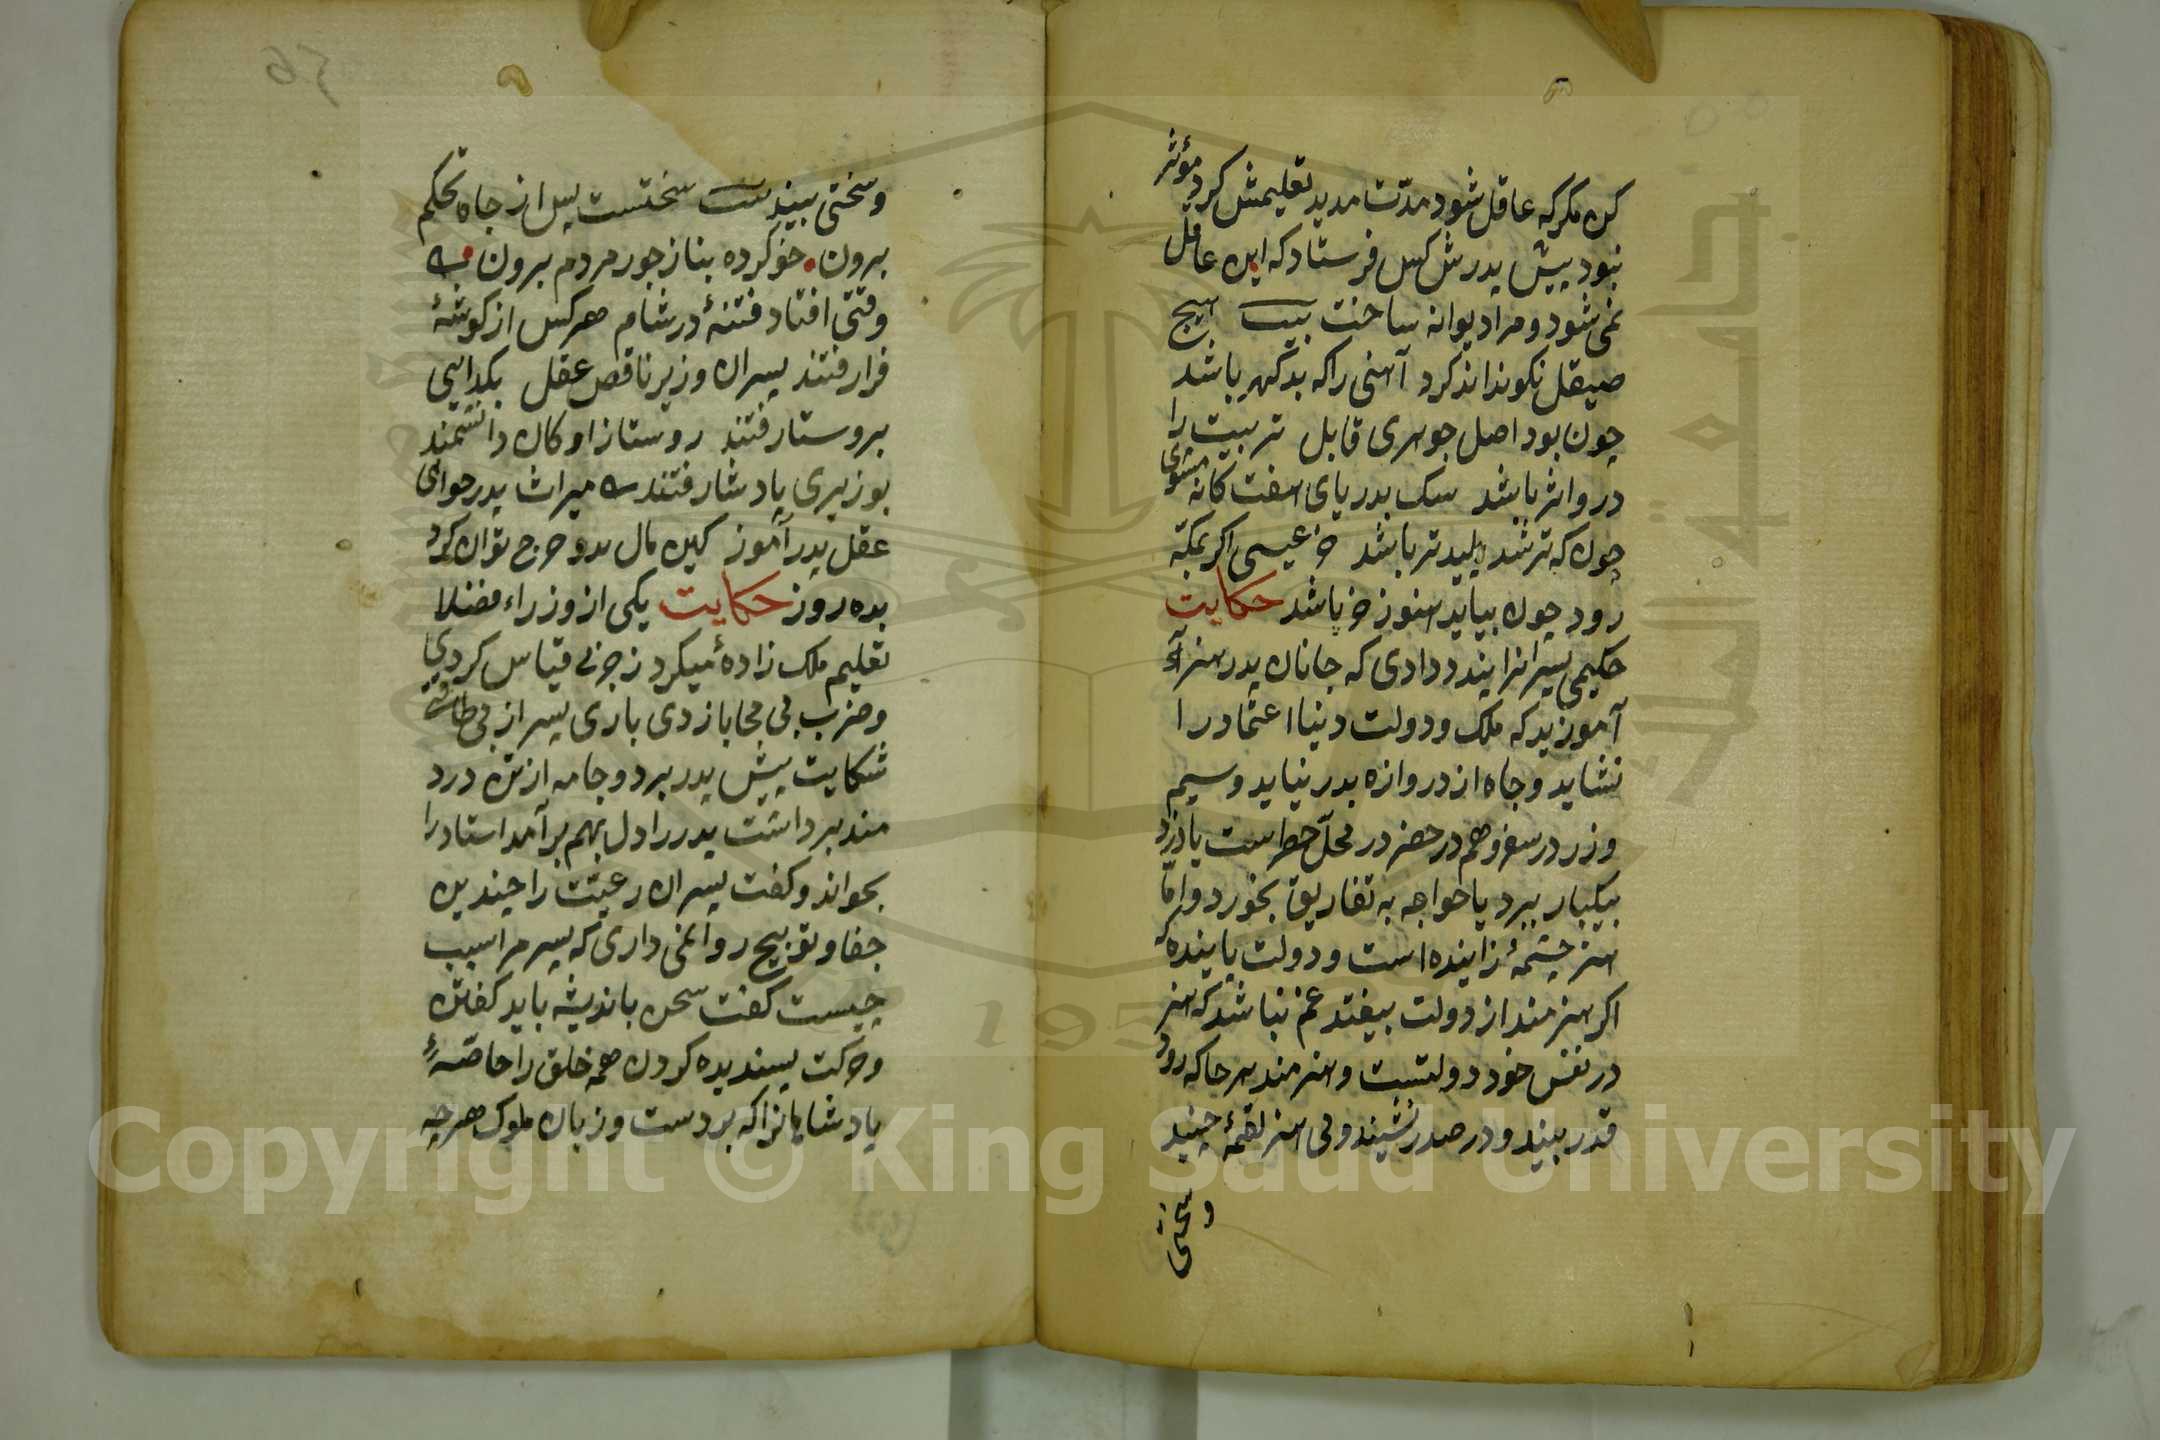 کن مکر که عاقل شود مدّت مدید تعلیمش کرد مؤثر
نبود پیش پدرش کس فرستاد که این عاقل
نمی شود و مرا دیوانه ساخت بیت هیچ
صیقل نکو نداند کرد آهنی را که بد کهر باشد
چون بود اصل جوهری قابل تربیت را
درو اثر باشد سک بدریای هفت کانه مشوی
چون که تر شد پلید تر باشد خر عیسی اکر بمکه
رود چون بیاید هنوز خر باشد حکایت
حکیمی پسرانرا پند دادی که جانان پدر هنر
آموزید که ملک و دولت دنیا اعتماد را
نشاید و جاه از دروازه بدر نیاید و سیم
و زر در سفر و هم در حضر در محلّ خطر است یا دزد
بیکبار ببرد یا خواجه به تفاریق بخورد و امّا
هنر چشمهٔ زاینده است و دولت پاینده که
اکر هنرمند از دولت بیفتد غم نباشد که هنر
در نفس خود دولتست و هنرمند هر جا که رود
قدر بیند و در صدر نشیند و بی هنر لقمهٔ چیند
و سختی
و سختی بیند بیت سختست پس از جاه تحکم
برون خو کرده بناز جور مردم برون
وقتی افتاد فتنهٔ در شام هر کس از کوشهٔ
فرا رفتند پسران وزیر ناقص عقل بکدایی
بروستا رفتند روستازادکان دانشمند
بوزیری پادشا رفتند میراث پدر خواهی
عقل پدر آموز کین مال پدر خرج توان کرد
بده روز حکایت یکی از وزراء فضلا
تعلیم ملک زادهٔ میکرد زجر بی قیاس کردی
و ضرب بی محابا زدی باری پسر از بی طاقتی
شکایت پیش پدر برد و جامه از تن درد
مند برداشت پدر را دل بهم برآمد استاد را
بخواند و کفت پسران رعیّت را چندین
جفا و توبیخ روا نمی داری که پسر مرا سبب
چیست کفت سخن باندیشه باید کفتن
و حرکت پسندیده کردن همه خلق را خاصّه
پادشاهانرا که بر دست و زبان ملوک هرچه
Copyright © King Saud University
195